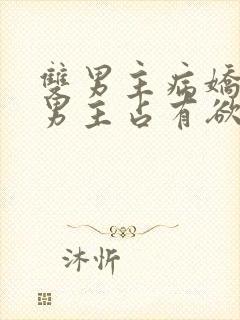 雙男主病嬌
男主占有欲
沐忻